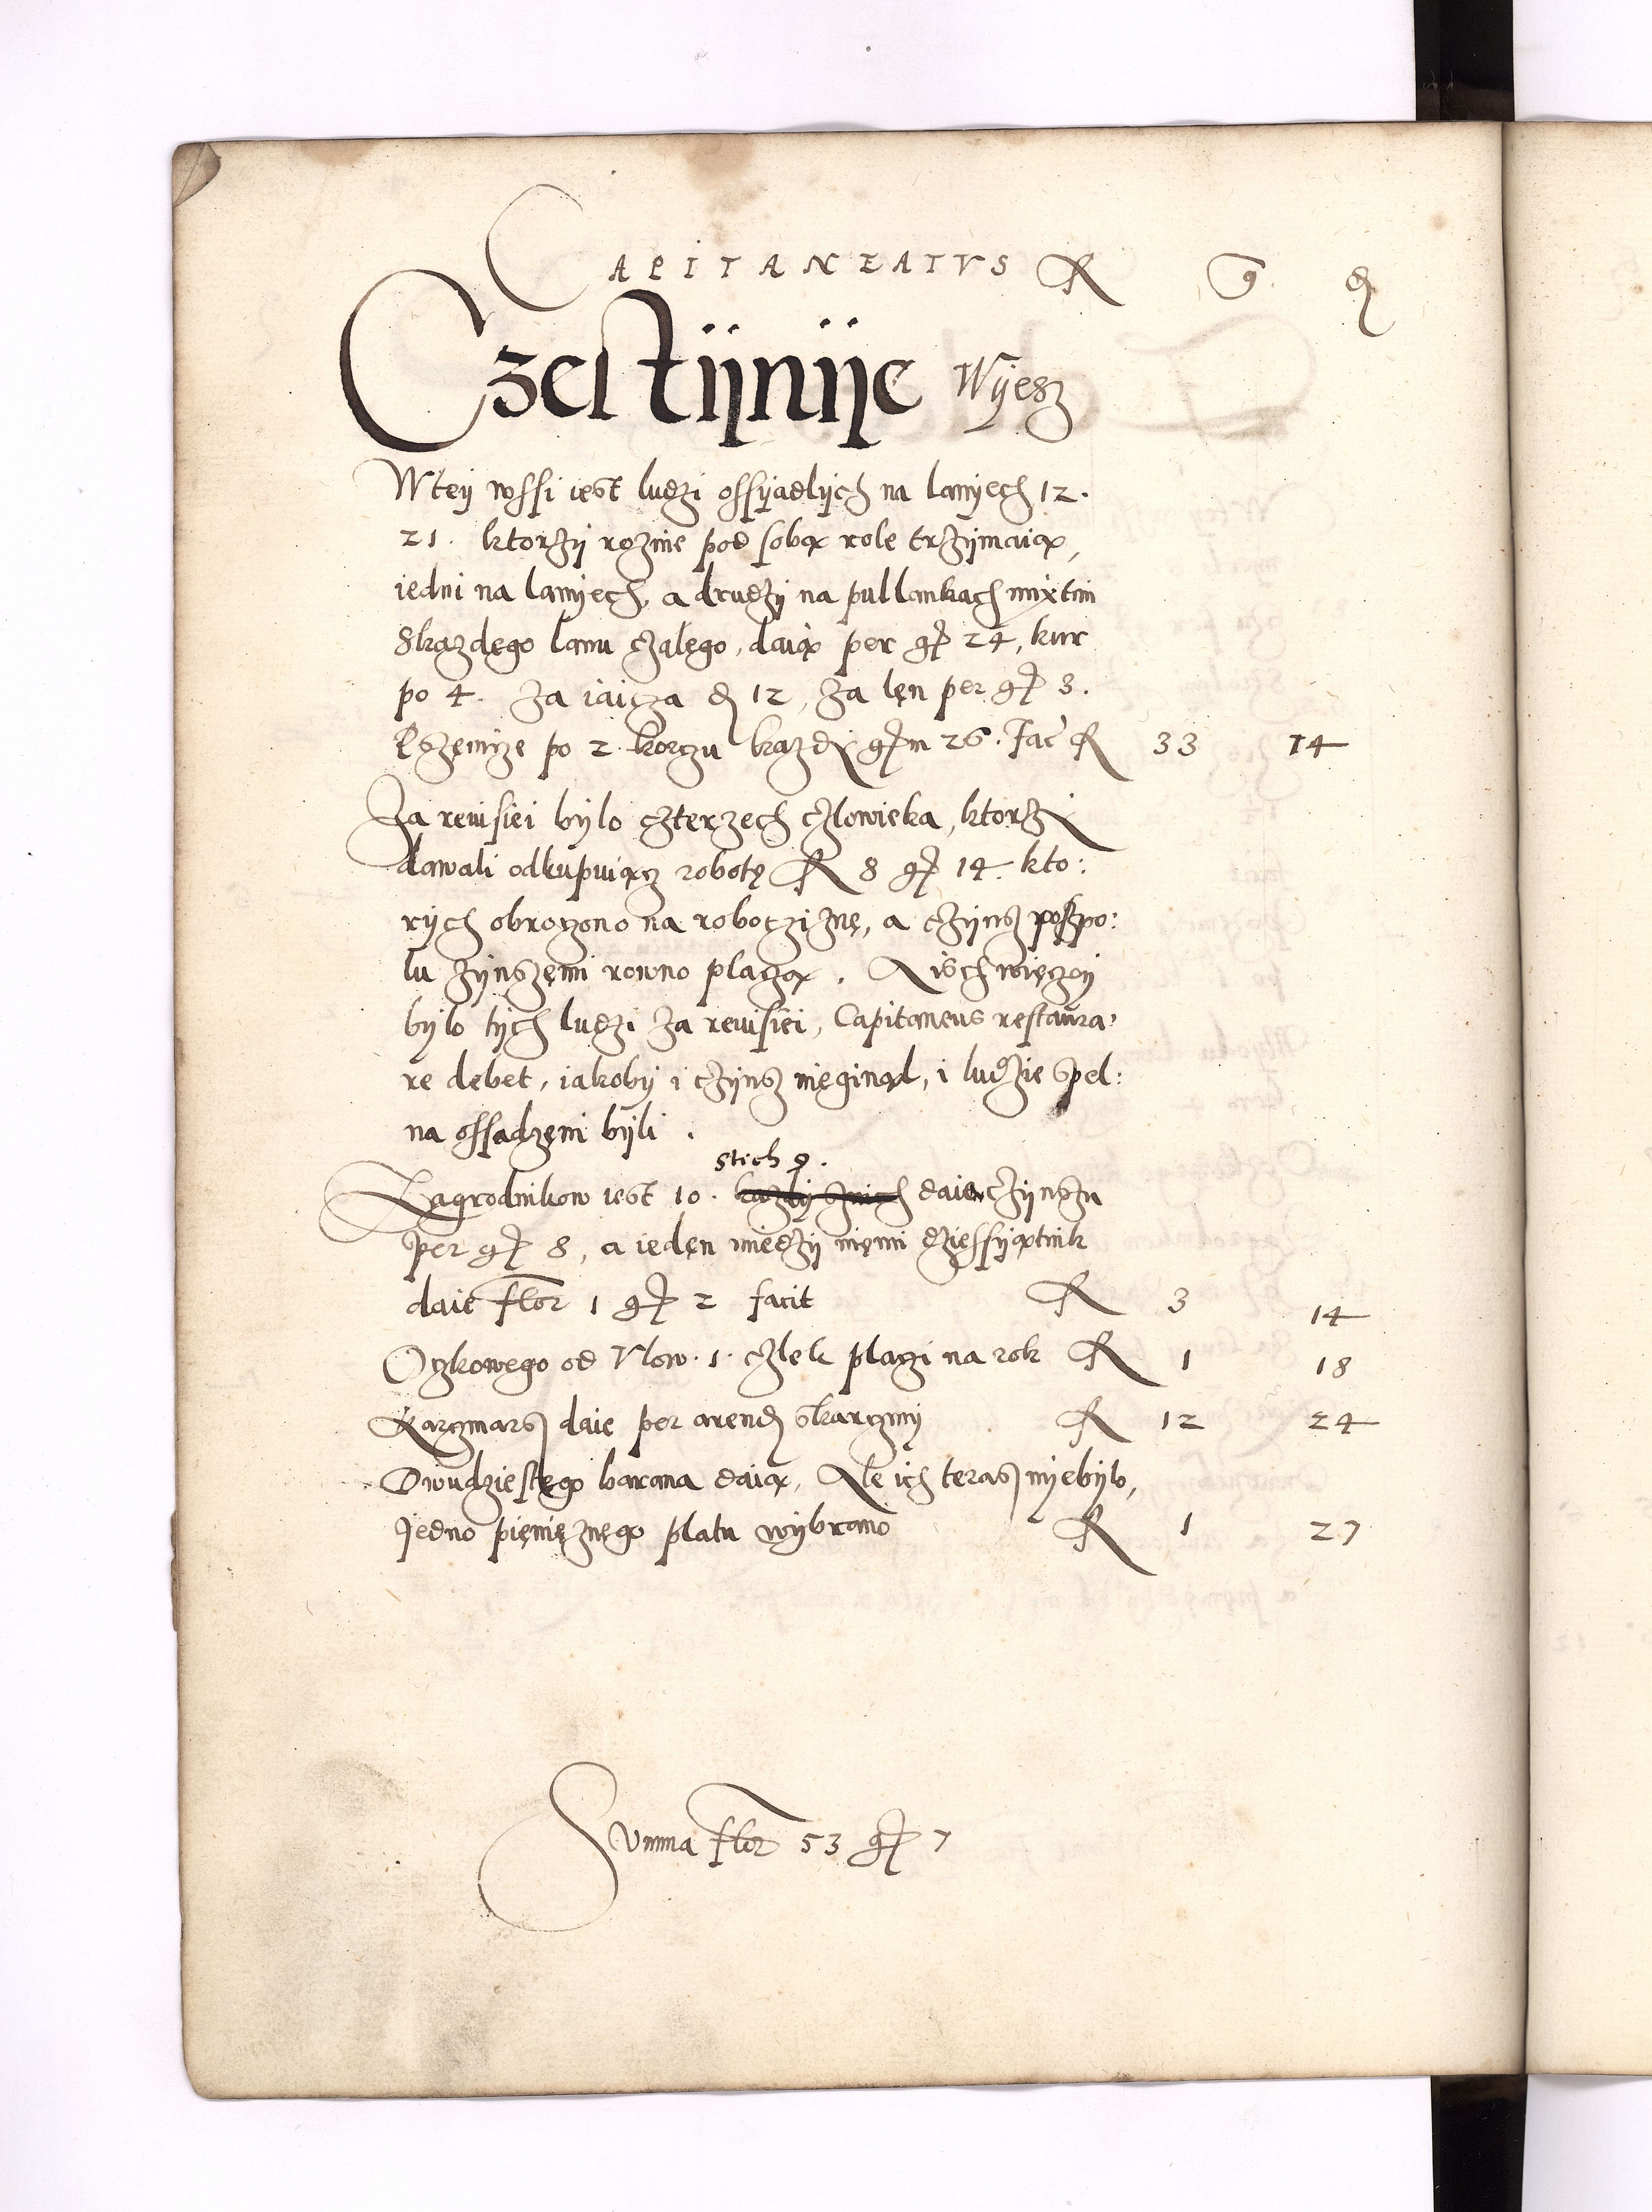 CAPITANEATVS R g d
Czestijnije Wijesz
W teij wssi iest ludzi ossijadlijch na lanijech 12.
21. ktorzij rozne pod sobą role trzijmaią,
iedni na lanijech, a drudzij na pullankach mixtim
Skazdego lanu czalego, daią per gr 24, kur
po 4. Za iaicza d 12, Za len per gr 3.
Pszenicze po 2 korczu kazdy gr m 26. Fac R 33 14
Za reuisiei bylo czterzech czlowieka, ktorzy
dawali odkupuiącz robotę R 8 gr 14. kto:
rych obroczono na robocziznę, a czijnsz poszpo:
lu zijnszemi rowno placzą. A isch więczeij
bylo tijch ludzi za reuisiei, Capitaneus restaura-
re debet, iakobij i czijnsz nieginął, i ludzie spel:
na ossadzeni bijli.
stich 9.
Zagrodnikow iest 10. kazdij znich daie czijnszu
per gr 8, a ieden miedzij niemi dziessijątnik
daie flor 1 gr 2 facit R 3 14
Oczkowego od Vlow. 1. czlek placzi na rok R 1 18
Karczmarsz daie per arend skarczmij R 12 24
Dwudziestego barana daią, Ale ich teras nijebijlo,
Jedno pieniężnego platu wijbrano R 1 27
Summa flor 53 gr 7